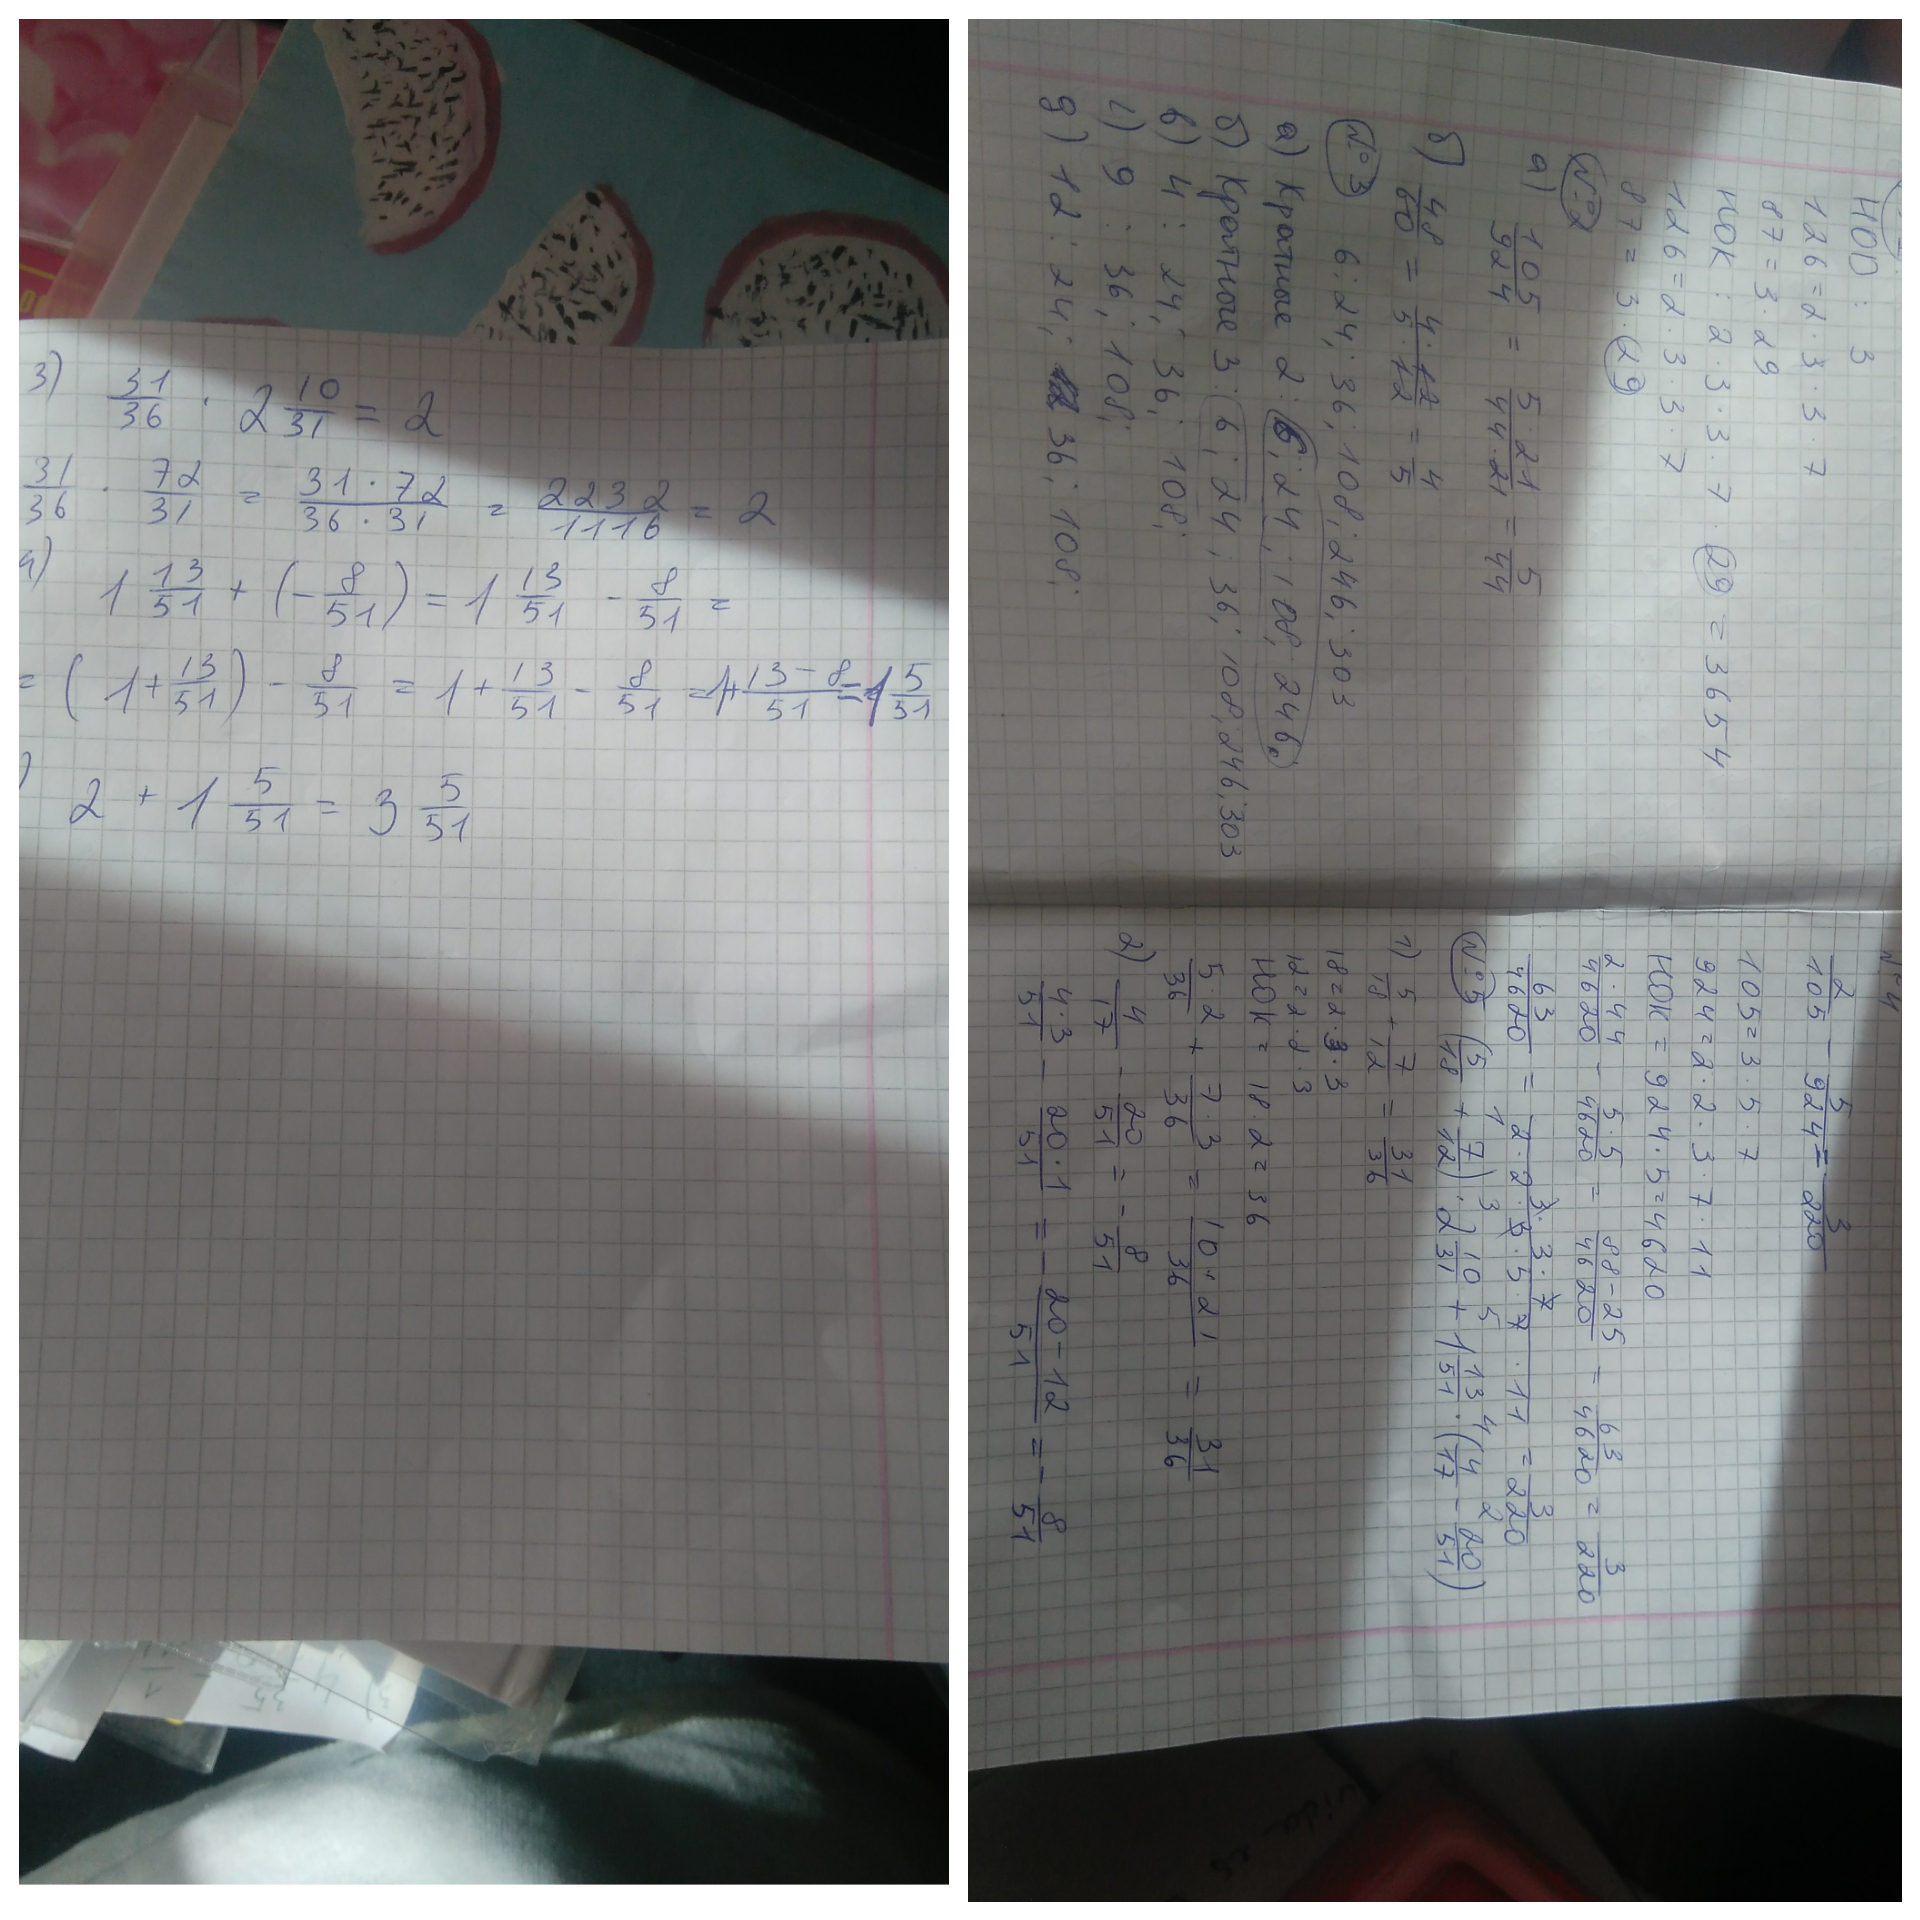 3) 31/36 · 2 10/31 = 2
31/36 · 72/31 = 31·72/36·31 = 2232/1116 = 2
4) 1 13/51 + (- 8/51) = 1 13/51 - 8/51 =
= (1 + 13/51) - 8/51 = 1 + 13/51 - 8/51 = 1 + 13-8/51 = 1 5/51
) 2 + 1 5/51 = 3 5/51
НОД: 3
126=2·3·3·7
87=3·29
НОК: 2·3·3·7·29=3654
126=2·3·3·7
87=3·29
№2
а) 105/924 = 5·21/44·21 = 5/44
б) 48/60 = 4·12/5·12 = 4/5
№3 6:24;36;108;246;303
а) Кратные 2: 6;24;108;246
б) Кратные 3: 6;24;36;108;246;303
в) 4: 24;36;108;
г) 9: 36;108;
д) 12: 24; 36;108;
№4
2/105 - 5/924 = 3/220
105=3·5·7
924=2·2·3·7·11
НОК=924·5=4620
2·44/4620 - 5·5/4620 = 88-25/4620 = 63/4620 = 3/220
63/4620 = 3·3·7/2·2·3·5·7·11 = 3/220
1 3 5 4 2
№5 (5/18 + 7/12) · 2 10/31 + 1 13/51 · (4/17 - 20/51)
1) 5/18 + 7/12 = 31/36
18=2·3·3
12=2·2·3
НОК=18·2=36
5·2/36 + 7·3/36 = 10+21/36 = 31/36
2) 4/17 - 20/51 = - 8/51
4·3/51 - 20·1/51 = - 20-12/51 = - 8/51